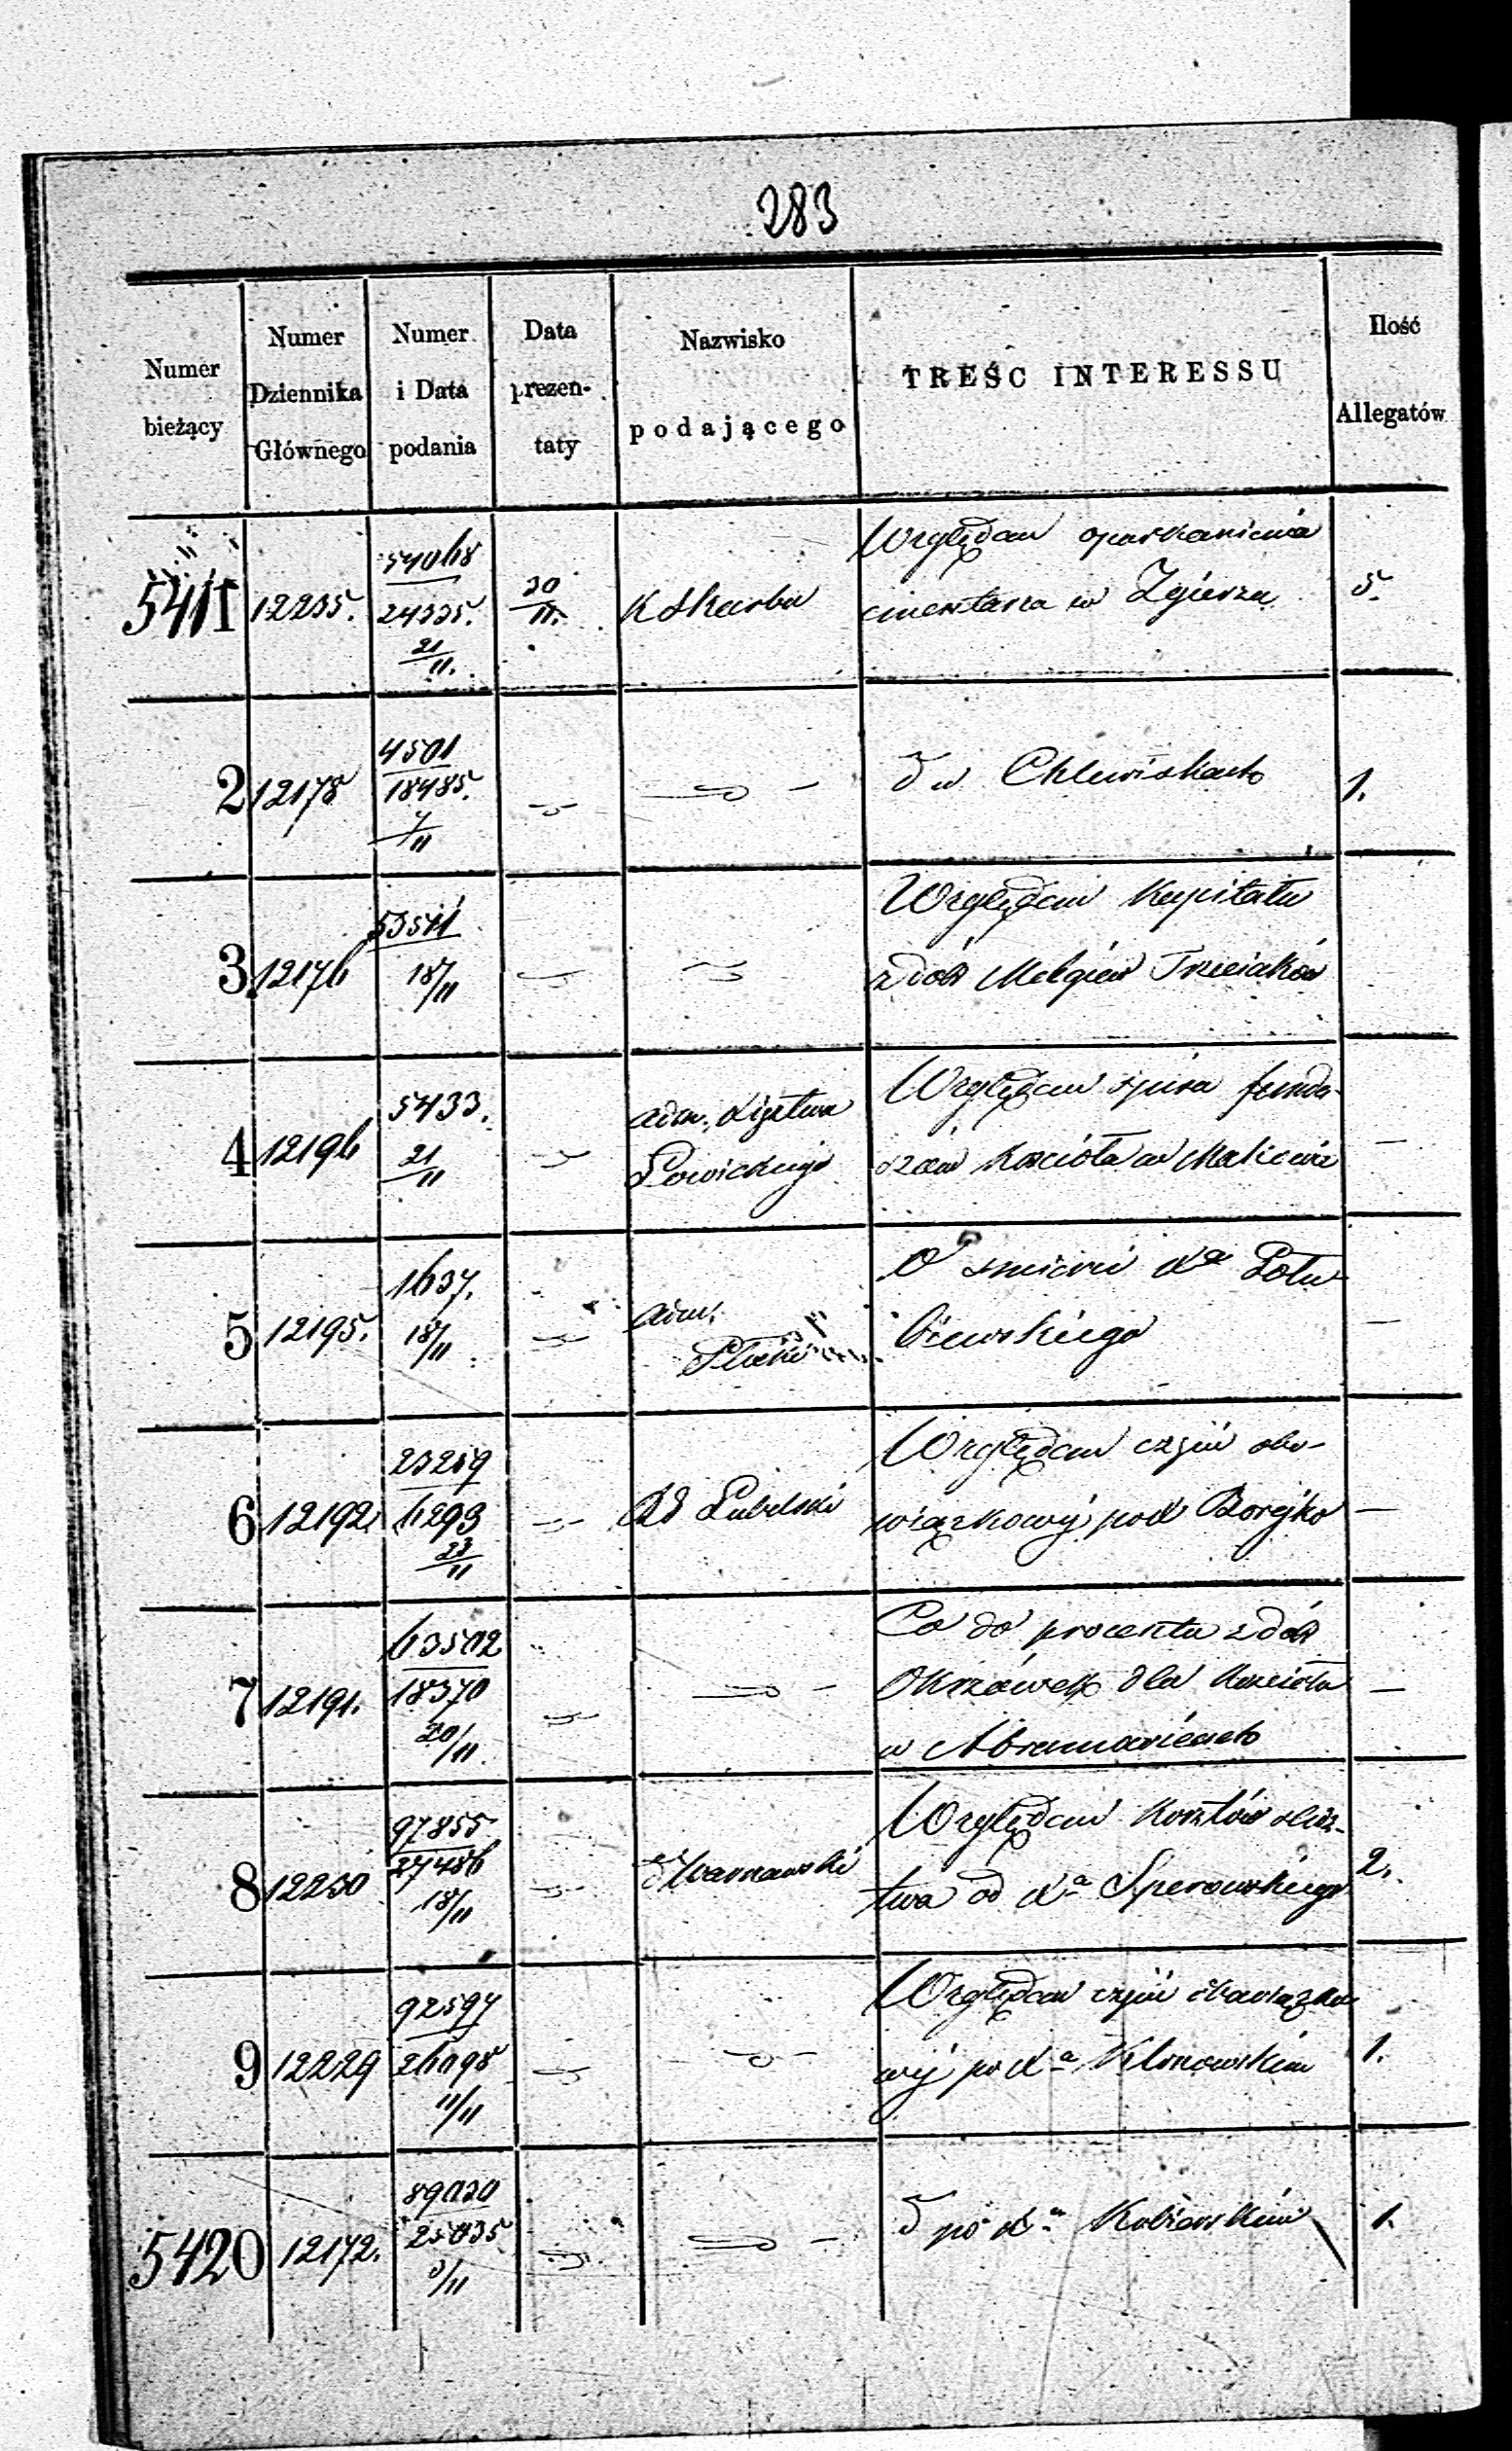 283
Numer bieżący
Numer Dziennika Głównego
Numer i Data podania
Data prezen- taty
Nazwisko podającego
TREŚC INTERESSU
Ilość Allegatów
5411
12235.
54068
24335.
21/11.
30/11.
K Skarbu
Względem oparkanienia
cmentarza w Zgierzu
5.
2
12178
4501
18485.
7/11
d w Chlewiskach
1.
3
12176
53511
18/11
Względem Kapitału
z dóbr Mełgiew Trzeciaków
4
12196
5433.
21/11
adm. Xięztwa
Łowickiego
Względem spisu fundu-
szów Kościoła w Makowie
—
5
12195.
1637.
18/11
adm.
O śmierci Xa Połu-
biewskiego
—
6
12192.
23259
6293
23/11
Rd Lubelski
Względem czyn obo-
wiązkowej po X Borejko
—
7
12191.
63502
18370
20/11
Co do procentu z dóbr
Okrzówek dla Kościoła
w Abramowicach
—
8
12230
97855
27486
18/11
d Warszawski
Względem Kosztów śledz-
twa od Xa Sperowskiego
2.
9
12229
92597
26098
11/11
Względem czyn obowiązko-
wej po Xa Klonowskim
1.
5420
12172.
89020
25035
3/11
d po Xa Kobierskim
1.